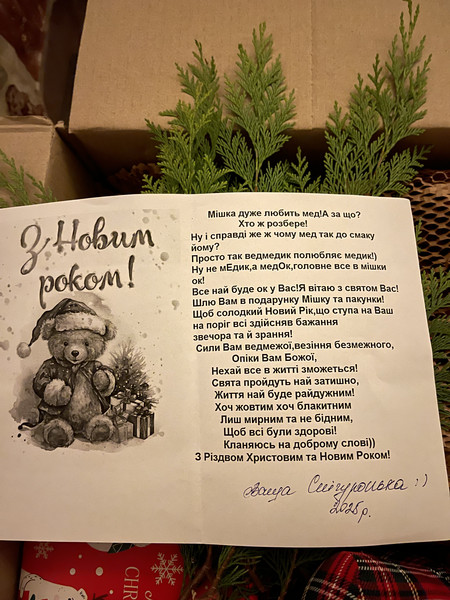 З Новим
роком!
Мішка дуже любить мед!А за що?
Хто ж розбере!
Ну і справді же ж чому мед так до смаку
йому?
Просто так ведмедик полюбляє медик!)
Ну не мЕдик,а медОк,головне все в мішки
ок!
Все най буде ок у Вас!Я вітаю з святом Вас!
Шлю Вам в подарунку Мішку та пакунки!
Щоб солодкий Новий Рік,що ступа на Ваш
на поріг всі здійсняв бажання
звечора та й зрання!
Сили Вам ведмежої,везіння безмежного,
Опіки Вам Божої,
Нехай все в житті зможеться!
Свята пройдуть най затишно,
Життя най буде райдужним!
Хоч жовтим хоч блакитним
Лиш мирним та не бідним,
Щоб всі були здорові!
Кланяюсь на доброму слові))
З Різдвом Христовим та Новим Роком!
Ваша Снігуронька :)
2025р.
CHR